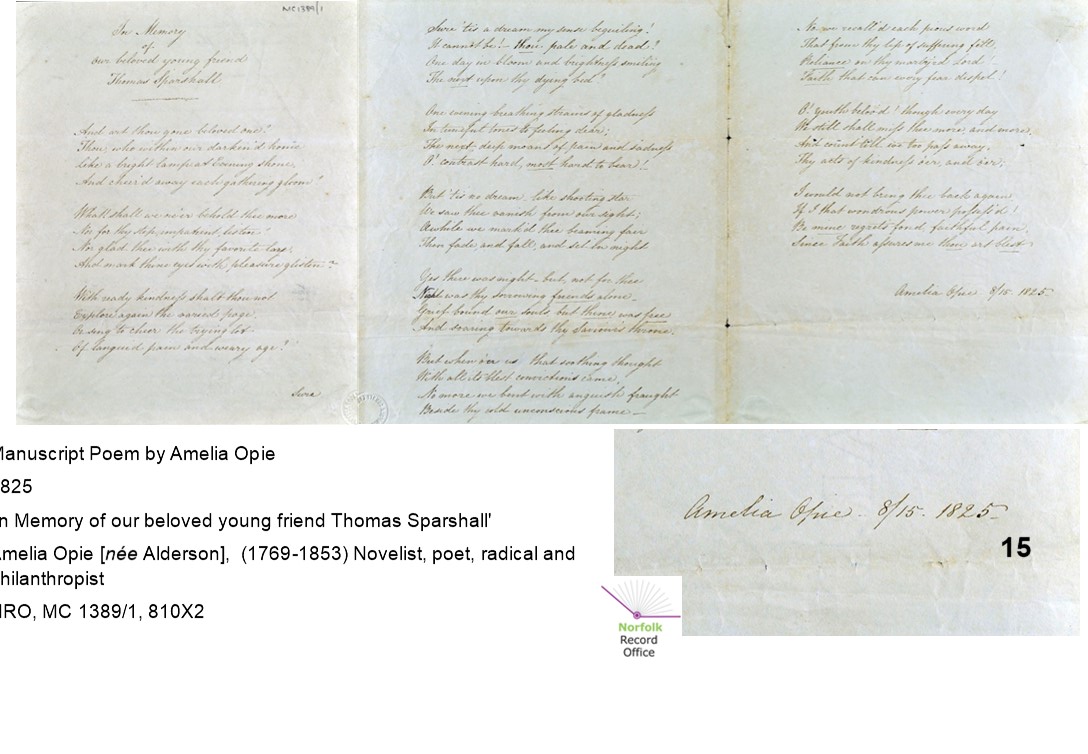 MC1389/1
In Memory
of
our beloved young friend
Thomas Sparshall
And art thou gone beloved one!
Thou, who within our darken'd home
Like a bright lamp at Evening shone,
And cheer'd away each gathering gloom!
What! shall we ne'er behold thee more
No for thy step impatient, listen!
No glad thee with thy favorite lore,
And mark thine eyes with pleasure glisten?
With ready kindness shalt thou not
Explore again the varied page,
Or sing to cheer the trying lot
Of languid pain and weary age?
Sure
Sure 'tis a dream my sense beguiling!
It cannot be! — thou pale and dead!
One day in bloom and brightness smiling
The next upon thy dying bed!
One evening breathing strains of gladness
In tuneful tones to feeling dear;
The next, deep moans of pain and sadness
O! contrast hard, most hard to bear!
But 'tis no dream, like shooting star
We saw thee vanish from our sight;
Awhile we mark'd thee beaming fair
Then fade, and fall, and set in night
Yes there was night — but, not for thee
Night was thy sorrowing friends alone —
Grief bound our souls but thine was free
And soaring towards thy Saviour's throne.
But when o'er us that soothing thought
With all its blest convictions came,
No more we bent with anguish fraught
Beside thy cold unconscious frame —
No we recall'd each pious word
That from thy lips of suffering fell,
Reliance on thy martyr'd Lord!
Faith that can every fear dispel!
O! youth belov'd! though every day
We still shall miss thee more, and more,
And count till we too pass away,
Thy acts of kindness o'er, and o'er;
I would not bring thee back again
If I that wondrous power possess'd!
Be mine regrets fond, faithful pain,
Since Faith assures me thou art blest
Amelia Opie 8/15 1825
Manuscript Poem by Amelia Opie
825
n Memory of our beloved young friend Thomas Sparshall'
Amelia Opie [née Alderson], (1769-1853) Novelist, poet, radical and
hilanthropist
NRO, MC 1389/1, 810X2
Amelia Opie. 8/15. 1825
15
Norfolk
Record
Office